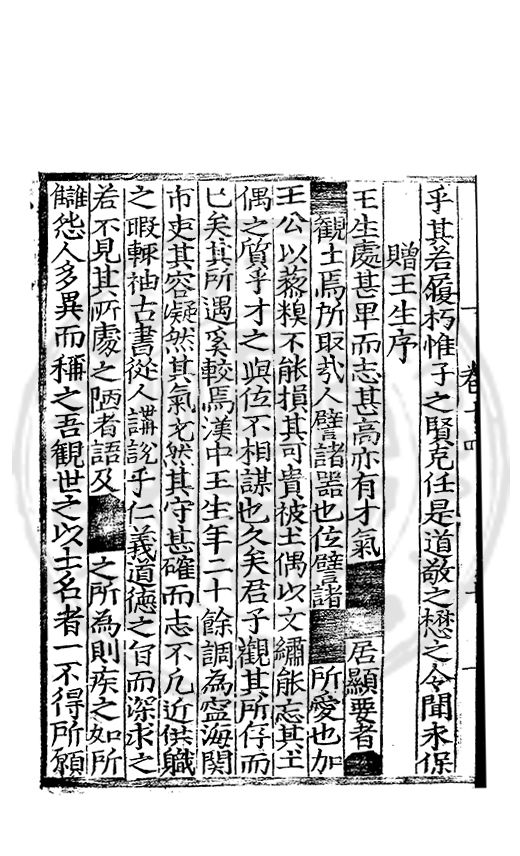 乎其若履朽惟子之賢克任是道敬之懋之令聞永保
贈王生序
王生處甚卑而志甚高亦有才氣 居顯要者
觀士焉所取哉人譬諸器也位譬諸 所愛也加
王公以蒸糗不能損其可貴被土偶以文繡能忘其土
偶之質乎才之與位不相謀也久矣君子觀其所仔而
已矣其所遇奚較焉漢中王生年二十餘調為寧海關
市吏其容凝然其氣充然其守甚確而志不凡近供職
之暇輒袖古書從人講說乎仁義道德之旨而深求之
若不見其所處之陋者語及 之所為則疾之如所
讎怨人多異而稱之吾觀世之以士名者一不得所願
卷十四